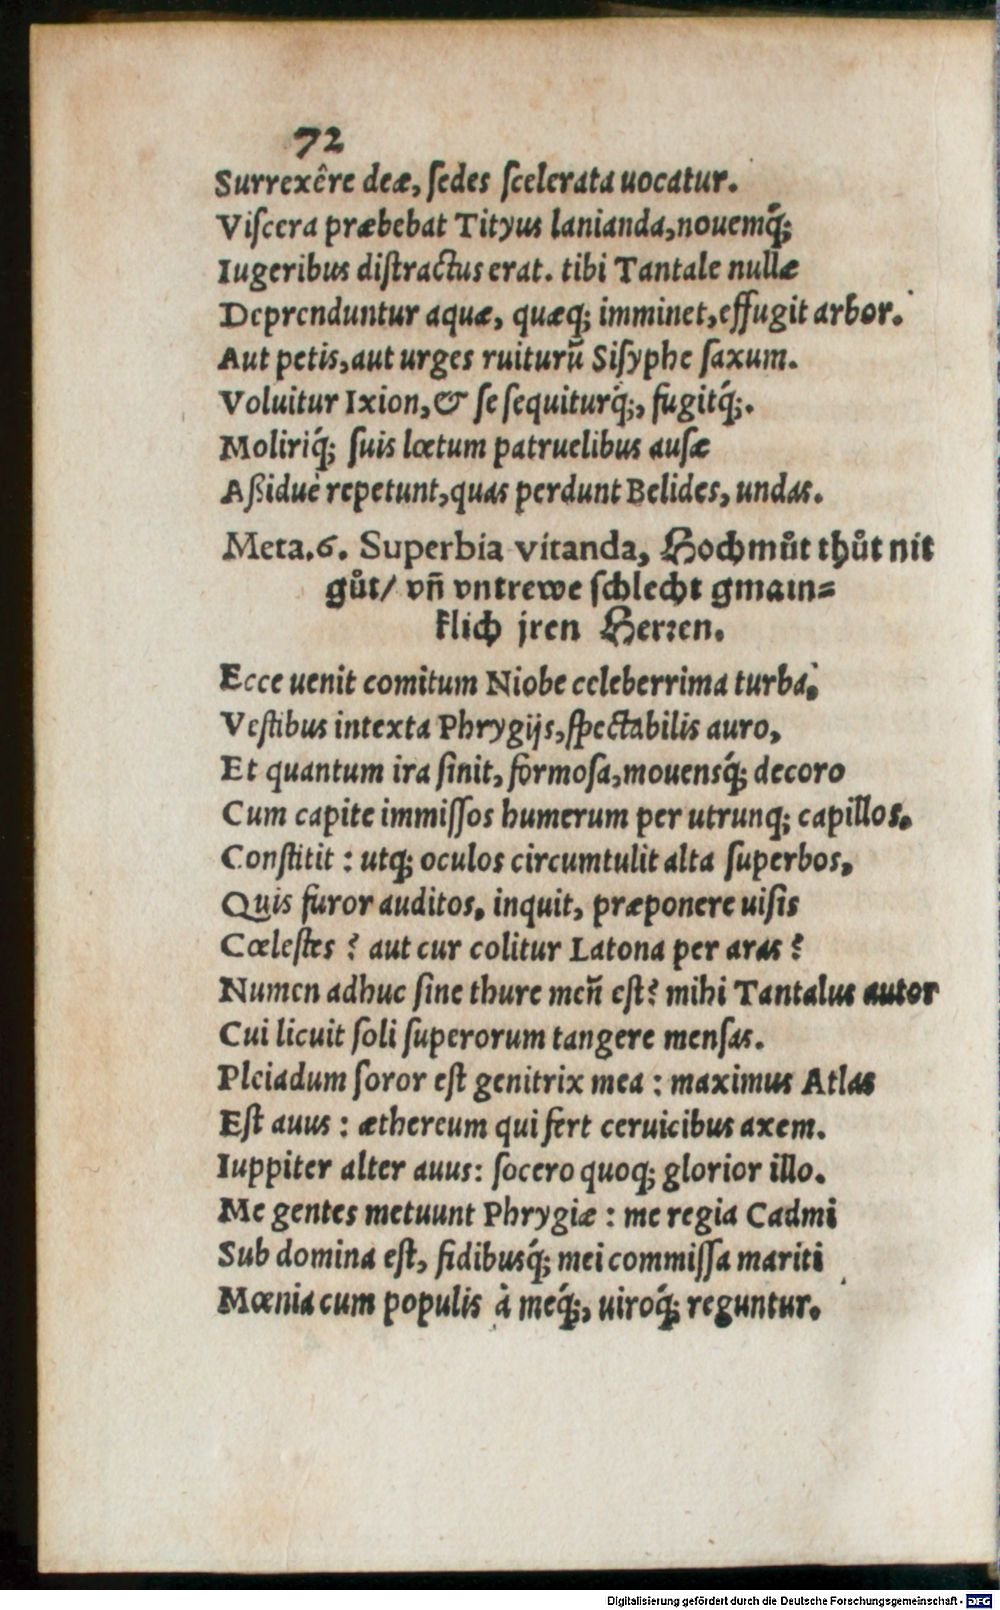 72
Surrexêre deæ, ſedes ſcelerata uocatur.
Viſcera præbebat Tityus lanianda, nouemq́;
Iugeribus diſtractus erat. tibi Tantale nullæ
Deprenduntur aquæ, quæq; imminet, effugit arbor.
Aut petis, aut urges ruiturũ Siſyphe ſaxum.
Voluitur Ixion, & ſe ſequiturq́;, fugitq́;.
Moliriq́; ſuis lœtum patruelibus auſæ
Aßiduè repetunt, quas perdunt Belides, undas.
Meta. 6. Superbia vitanda, Hochmůt thůt nit
gůt/ vñ vntrewe ſchlecht gmain=
klich jren Herꝛen.
Ecce uenit comitum Niobe celeberrima turba,
Veſtibus intexta Phrygijs, ſpectabilis auro,
Et quantum ira ſinit, formoſa, mouensq́; decoro
Cum capite immiſſos humerum per utrunq; capillos.
Conſtitit: utq; oculos circumtulit alta ſuperbos,
Quis furor auditos, inquit, præponere uiſis
Cœleſtes? aut cur colitur Latona per aras?
Numen adhuc ſine thure meñ eſt? mihi Tantalus autor
Cui licuit ſoli ſuperorum tangere menſas.
Pleiadum ſoror eſt genitrix mea: maximus Atlas
Eſt auus: æthereum qui fert ceruicibus axem.
Iuppiter alter auus: ſocero quoq; glorior illo.
Me gentes metuunt Phrygiæ: me regia Cadmi
Sub domina eſt, fidibusq́; mei commiſſa mariti
Mœnia cum populis à meq́;, uiroq́; reguntur.
Digitalisierung gefördert durch die Deutsche Forschungsgemeinschaft - DFG